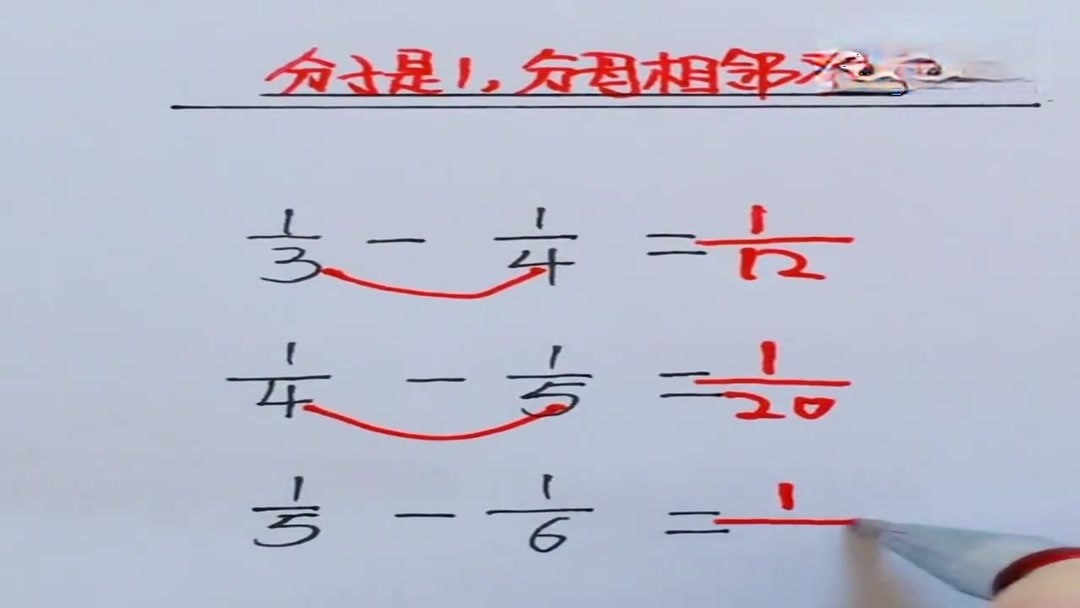 分子是1,分母相邻
1/3 - 1/4 = 1/12
1/4 - 1/5 = 1/20
1/5 - 1/6 = 1/